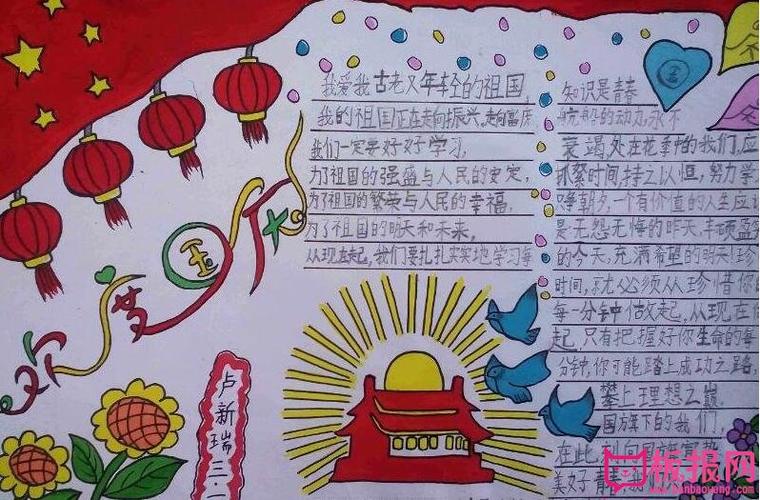 欢度国庆
我爱我古老又年轻的祖国,
我的祖国正在走向振兴,走向富庶
我们一定要好好学习,
为了祖国的强盛与人民的安定,
为了祖国的繁荣与人民的幸福,
为了祖国的明天和未来,
从现在起,我们要扎扎实实地学习每
知识是青春
般的动力,永不
衰竭,处在花季中的我们,应
抓紧时间,持之以恒,努力学
朝夕,一个有价值的人生应
是无怨无悔的昨天,丰硕盈
的今天,充满希望的明天!珍
时间,就必须从珍惜你
每一分钟做起,从现在
起,只有把握好你生命的每
分钟,你可能踏上成功之路,
攀上理想之巅.
国旗下的我们,
在此,向国旗宣
美好青春
卢新瑞三.一
板报网
www.banbaowang.com